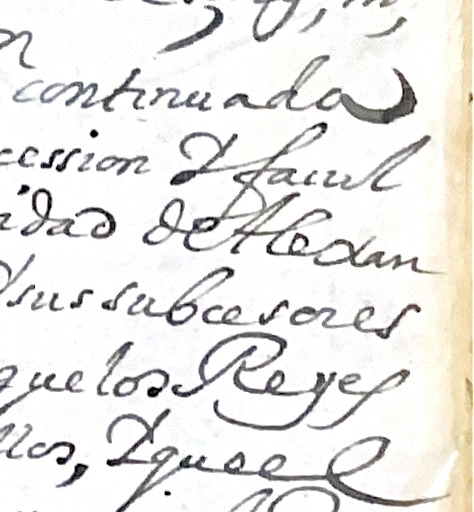 continuada
cession D facul
idad de Alexan
D sus subcesores
que los Reyes
llos, D que el